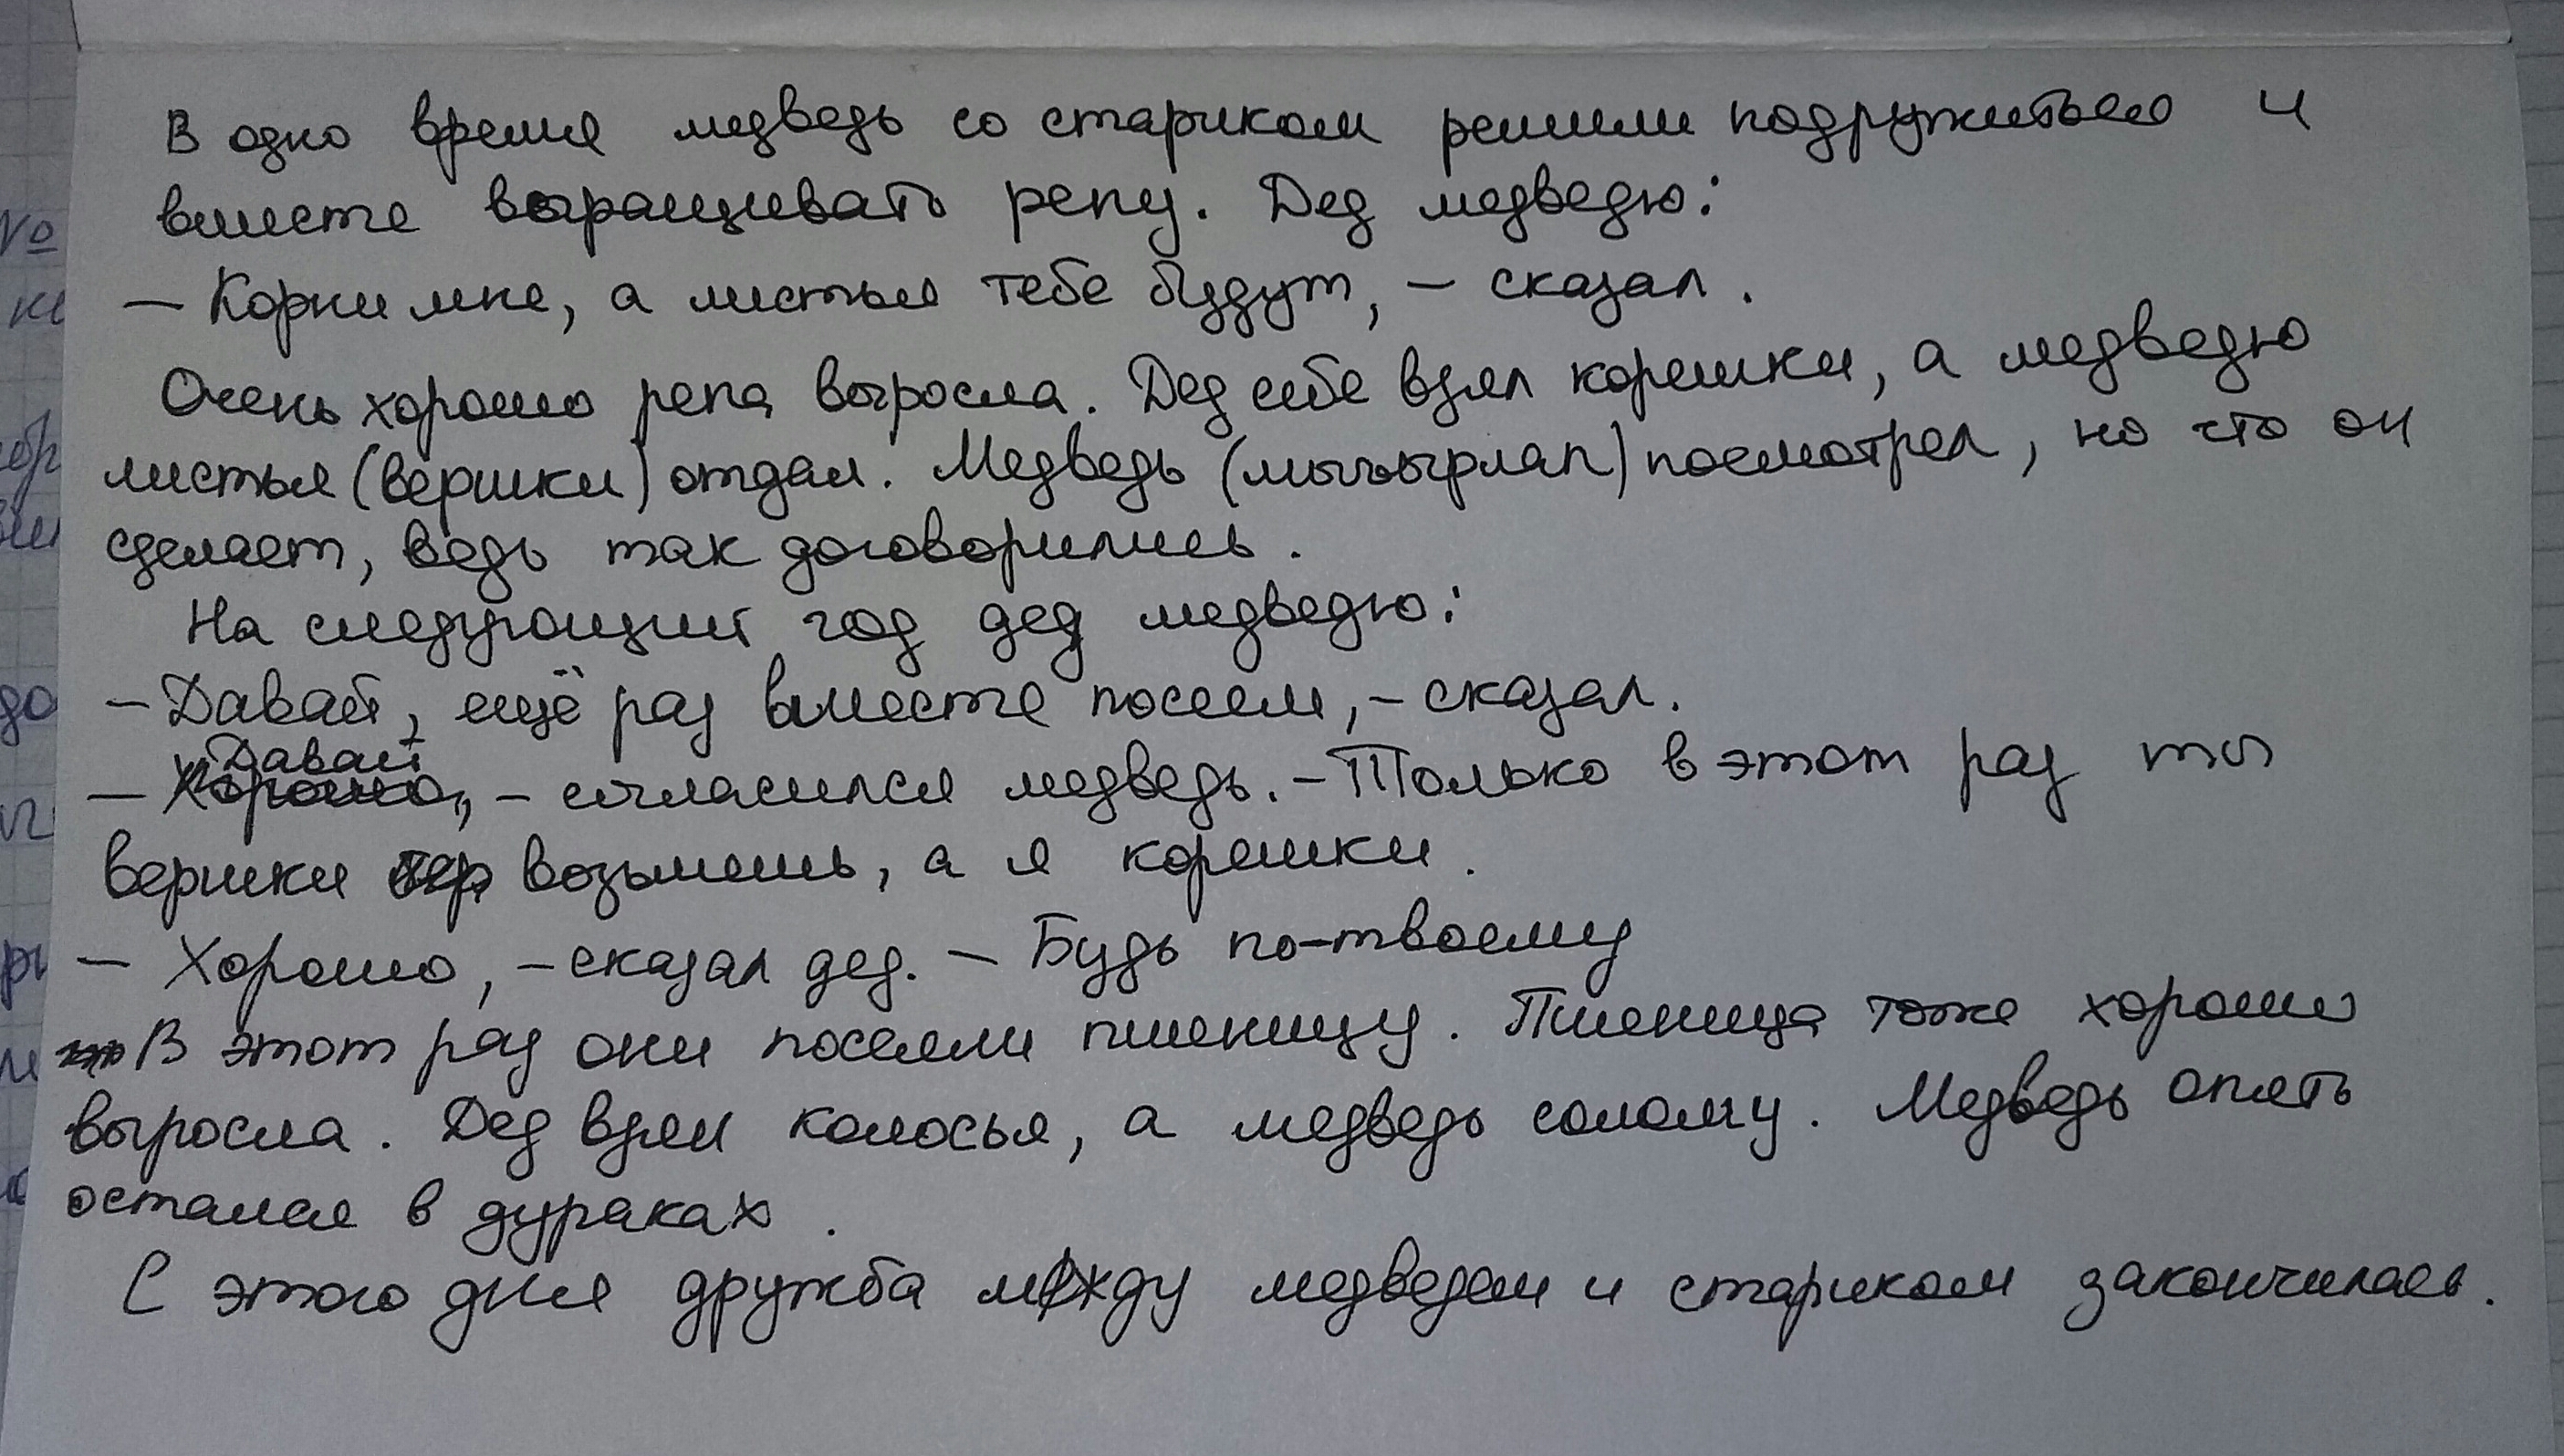 В одно время медведь со стариком решили подружиться и
вместе выращивать репу. Дед медведю:
— Корни мне, а листья тебе будут, — сказал.
Очень хорошо репа выросла. Дед себе взял корешки, а медведю
листья (вершки) отдал. Медведь (мычырлап) посмотрел, но что он
сделает, ведь так договорились.
На следующий год дед медведю:
— Давай, ещё раз вместе посеем, — сказал.
— Давай, — согласился медведь. — Только в этот раз ты
вершки возьмешь, а я корешки.
— Хорошо, — сказал дед. — Будь по-твоему
В этот раз они посеяли пшеницу. Пшеница тоже хорошо
выросла. Дед взял колосья, а медведь солому. Медведь опять
остался в дураках.
С этого дня дружба между медведем и стариком закончилась.